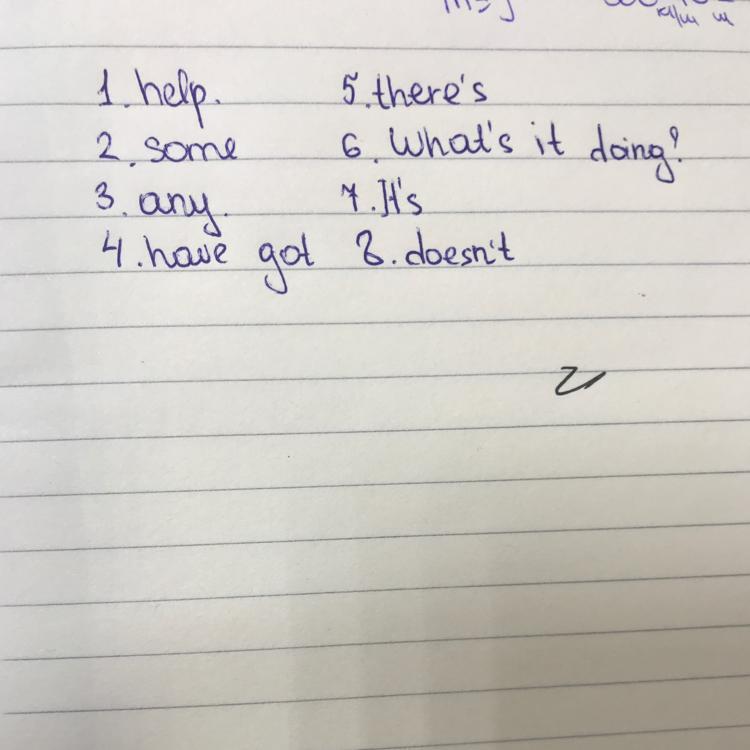 1. help.
2. some
3. any.
4. have got
5. there's
6. What's it doing?
7. It's
8. doesn't